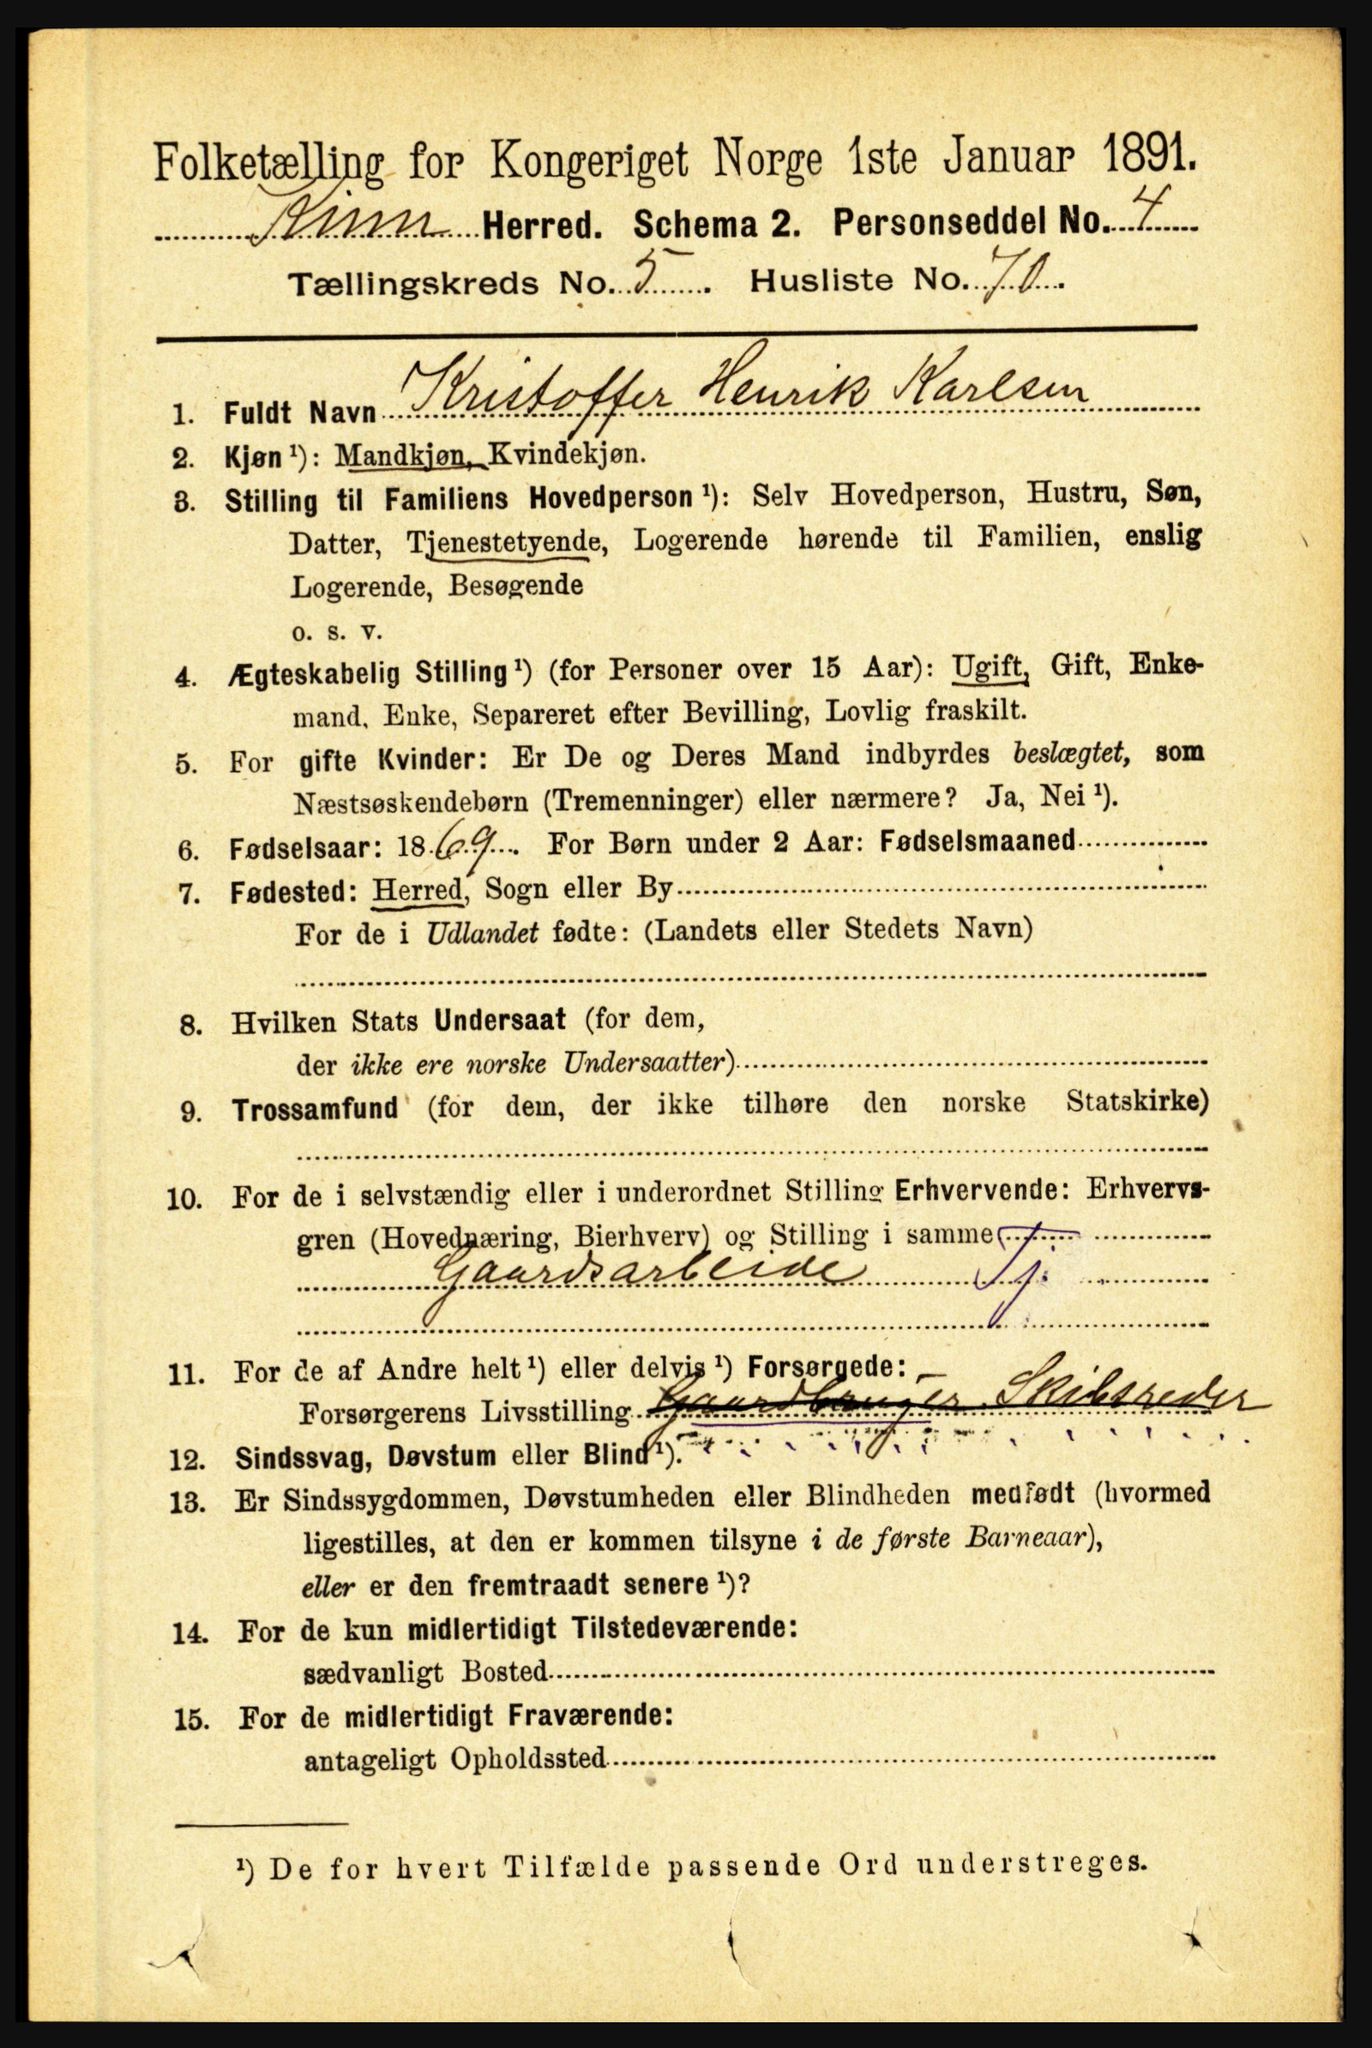 Folketælling for Kongeriget Norge 1ste Januar 1891.
Kinn Herred. Schema 2. Personseddel No. 4
Tællingskreds No. 5. Husliste No. 70.
1. Fuldt Navn Kristoffer Henrik Karlsen
2. Kjøn ¹): Mandkjøn, Kvindekjøn.
3. Stilling til Familiens Hovedperson ¹): Selv Hovedperson, Hustru, Søn,
Datter, Tjenestetyende, Logerende hørende til Familien, enslig
Logerende, Besøgende
o. s. v.
4. Ægteskabelig Stilling ¹) (for Personer over 15 Aar): Ugift, Gift, Enke-
mand, Enke, Separeret efter Bevilling, Lovlig fraskilt.
5. For gifte Kvinder: Er De og Deres Mand indbyrdes beslægtet, som
Næstsøskendebørn (Tremenninger) eller nærmere? Ja, Nei ¹).
6. Fødselsaar: 1869. For Børn under 2 Aar: Fødselsmaaned
7. Fødested: Herred, Sogn eller By
For de i Udlandet fødte: (Landets eller Stedets Navn)
8. Hvilken Stats Undersaat (for dem,
der ikke ere norske Undersaatter)
9. Trossamfund (for dem, der ikke tilhøre den norske Statskirke)
10. For de i selvstændig eller i underordnet Stilling Erhvervende: Erhvervs-
gren (Hovednæring, Bierhverv) og Stilling i samme
Gaardsarbeide Tj.
11. For de af Andre helt ¹) eller delvis ¹) Forsørgede:
Forsørgerens Livsstilling Gaardbruger Skibsreder
12. Sindssvag, Døvstum eller Blind ¹).
13. Er Sindssygdommen, Døvstumheden eller Blindheden medfødt (hvormed
ligestilles, at den er kommen tilsyne i de første Barneaar),
eller er den fremtraadt senere ¹)?
14. For de kun midlertidigt Tilstedeværende:
sædvanligt Bosted
15. For de midlertidigt Fraværende:
antageligt Opholdssted
¹) De for hvert Tilfælde passende Ord understreges.